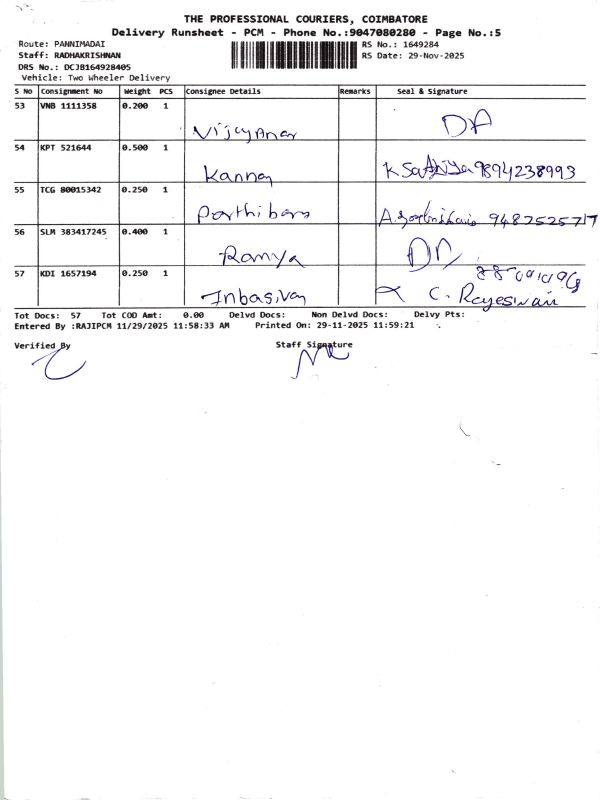 THE PROFESSIONAL COURIERS, COIMBATORE
Delivery Runsheet - PCM - Phone No.:9047080280 - Page No.:5
Route: PANNIMADAI
RS No.: 1649284
Staff: RADHAKRISHNAN
RS Date: 29-Nov-2025
DRS No.: DCJB164928405
Vehicle: Two Wheeler Delivery
S No Consignment No Weight PCS Consignee Details Remarks Seal & Signature
53 VNB 1111358 0.200 1
54 KPT 521644 0.500 1
Kannan K Sathiya 9894238993
55 TCG 80015342 0.250 1
Parthiban
56 SLM 383417245 0.400 1
Ramya
57 KDI 1657194 0.250 1
Inbasivan C. Rajeswari
Tot Docs: 57 Tot COD Amt: 0.00 Delvd Docs: Non Delvd Docs: Delvy Pts:
Entered By :RAJIPCM 11/29/2025 11:58:33 AM Printed On: 29-11-2025 11:59:21
Verified By Staff Signature